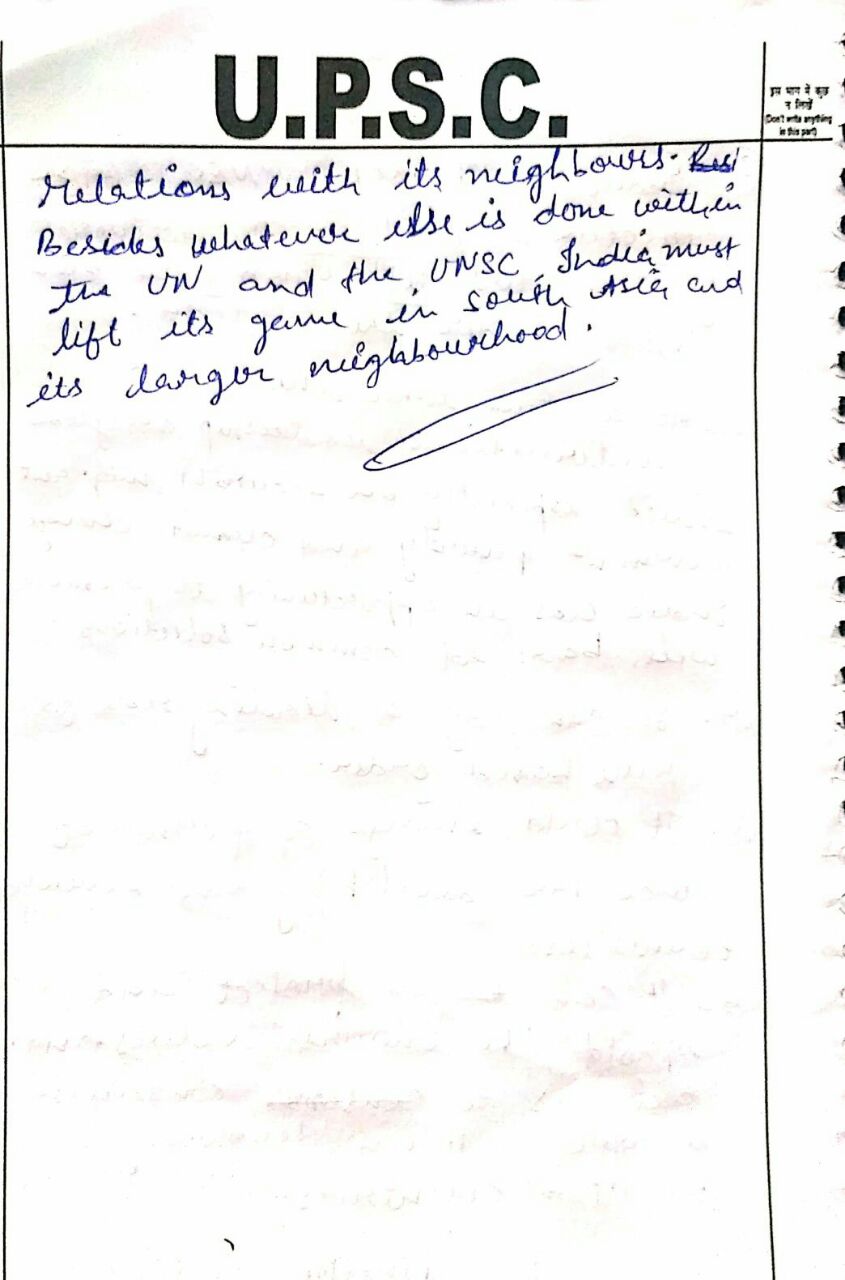 U.P.S.C.
इस भाग में कुछ
न लिखें
(Don't write anything
in this part)
Relations with its neighbours.
Besides whatever else is done within
the UN and the UNSC, India must
lift its game in South Asia and
its larger neighbourhood.